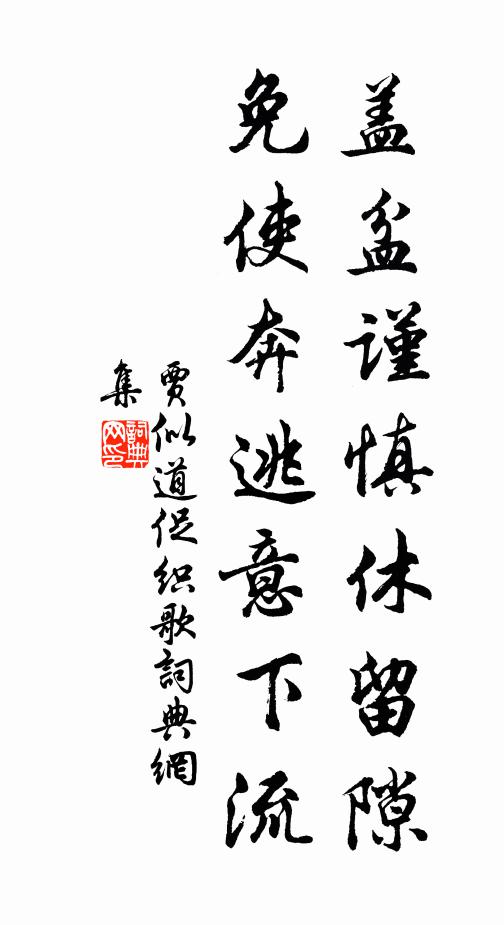 盖盆謹慎休留隙
免使奔逃意下流
賈似道促织歌詞典網
集
詞典網印